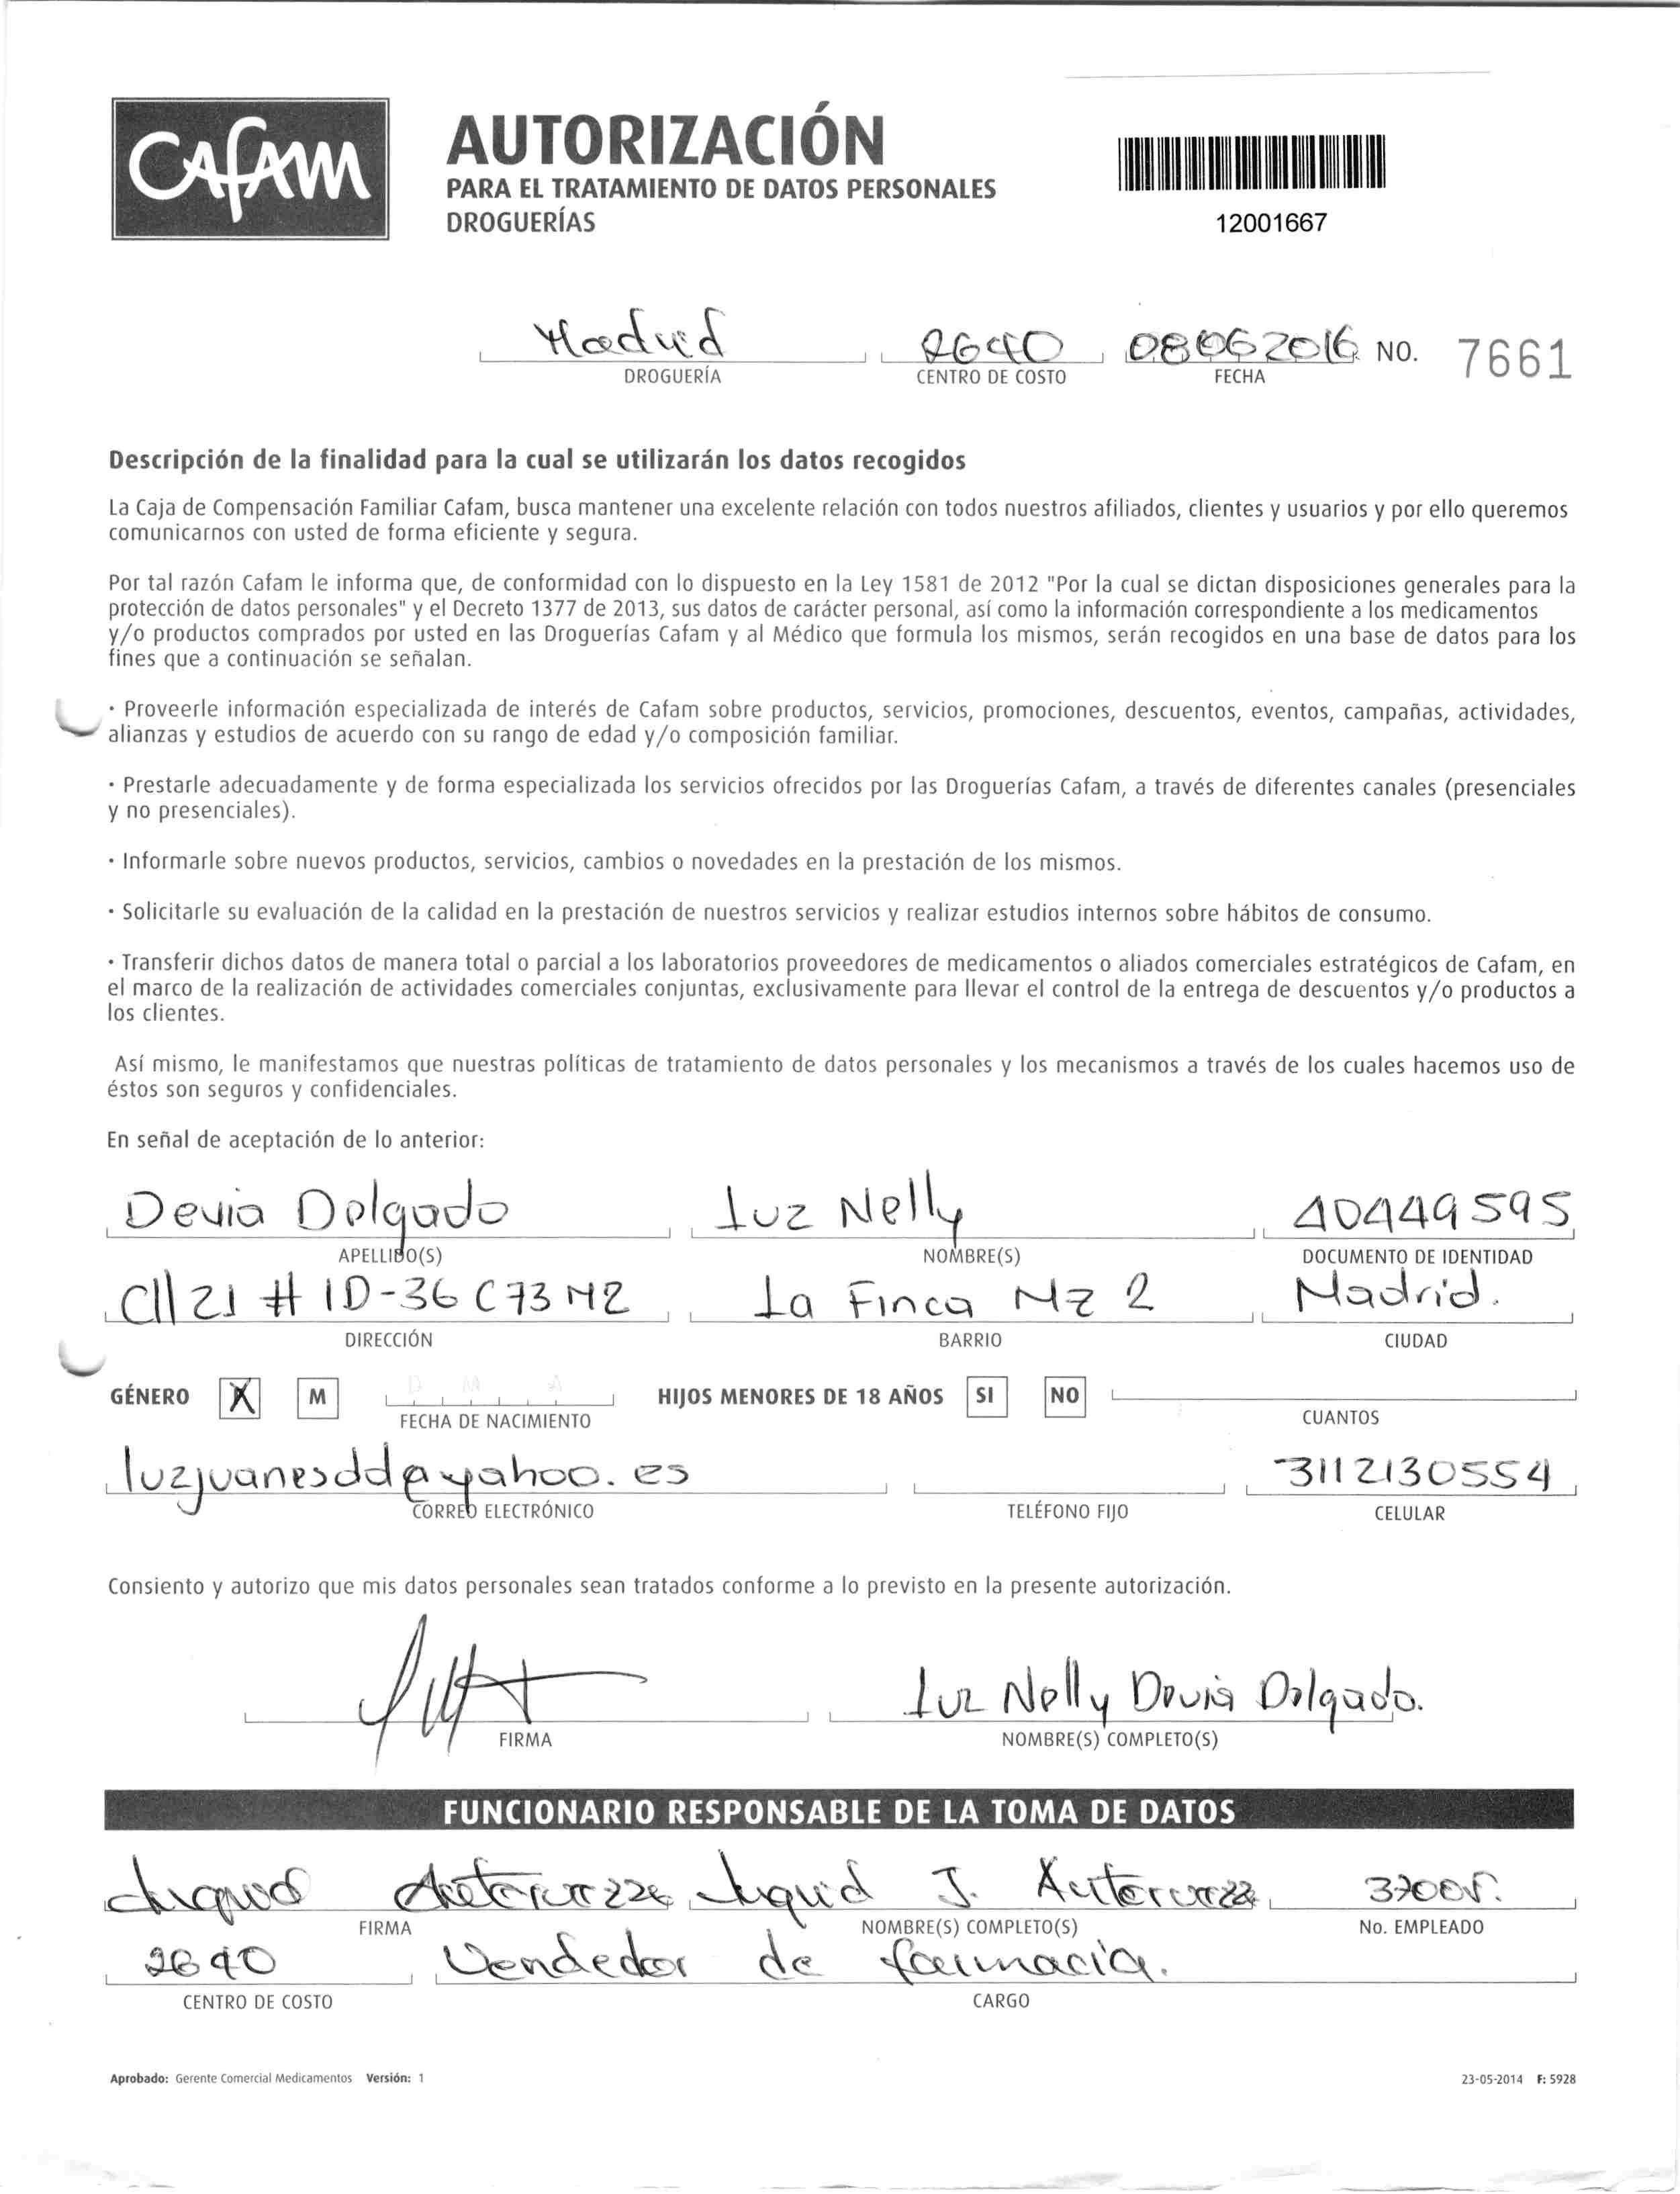 CAFAM
AUTORIZACIÓN
PARA EL TRATAMIENTO DE DATOS PERSONALES
DROGUERÍAS
12001667
Madrid 2640 08062016 NO. 7661
DROGUERÍA CENTRO DE COSTO FECHA
Descripción de la finalidad para la cual se utilizarán los datos recogidos
La Caja de Compensación Familiar Cafam, busca mantener una excelente relación con todos nuestros afiliados, clientes y usuarios y por ello queremos
comunicarnos con usted de forma eficiente y segura.
Por tal razón Cafam le informa que, de conformidad con lo dispuesto en la Ley 1581 de 2012 "Por la cual se dictan disposiciones generales para la
protección de datos personales" y el Decreto 1377 de 2013, sus datos de carácter personal, así como la información correspondiente a los medicamentos
y/o productos comprados por usted en las Droguerías Cafam y al Médico que formula los mismos, serán recogidos en una base de datos para los
fines que a continuación se señalan.
· Proveerle información especializada de interés de Cafam sobre productos, servicios, promociones, descuentos, eventos, campañas, actividades,
alianzas y estudios de acuerdo con su rango de edad y/o composición familiar.
· Prestarle adecuadamente y de forma especializada los servicios ofrecidos por las Droguerías Cafam, a través de diferentes canales (presenciales
y no presenciales).
· Informarle sobre nuevos productos, servicios, cambios o novedades en la prestación de los mismos.
· Solicitarle su evaluación de la calidad en la prestación de nuestros servicios y realizar estudios internos sobre hábitos de consumo.
· Transferir dichos datos de manera total o parcial a los laboratorios proveedores de medicamentos o aliados comerciales estratégicos de Cafam, en
el marco de la realización de actividades comerciales conjuntas, exclusivamente para llevar el control de la entrega de descuentos y/o productos a
los clientes.
Así mismo, le manifestamos que nuestras políticas de tratamiento de datos personales y los mecanismos a través de los cuales hacemos uso de
éstos son seguros y confidenciales.
En señal de aceptación de lo anterior:
Devia Delgado Luz Nelly 40449595
APELLIDO(S) NOMBRE(S) DOCUMENTO DE IDENTIDAD
Cll 21 # 1D-36 C73 MZ La Finca Mz 2 Madrid.
DIRECCIÓN BARRIO CIUDAD
GÉNERO X M D M A HIJOS MENORES DE 18 AÑOS SI NO
FECHA DE NACIMIENTO CUANTOS
luzjuanesdd@yahoo.es 3112130554
CORREO ELECTRÓNICO TELÉFONO FIJO CELULAR
Consiento y autorizo que mis datos personales sean tratados conforme a lo previsto en la presente autorización.
Luz Nelly Devia Delgado.
FIRMA NOMBRE(S) COMPLETO(S)
FUNCIONARIO RESPONSABLE DE LA TOMA DE DATOS
J.
FIRMA NOMBRE(S) COMPLETO(S) No. EMPLEADO
2640 Vendedor de farmacia.
CENTRO DE COSTO CARGO
Aprobado: Gerente Comercial Medicamentos Versión: 1 23-05-2014 F: 5928